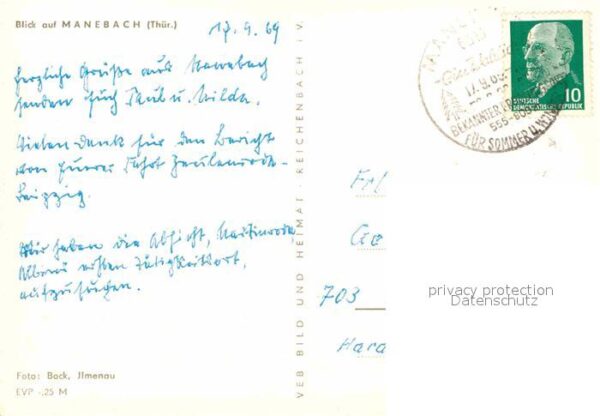 Blick auf MANEBACH (Thür.)
17.9.69
herzliche Grüße aus Manebach
senden Euch Paul u. Milda.
Vielen Dank für den Bericht
von Eurer Fahrt Zeulenroda-
Leipzig.
Wir haben die Absicht, Martinroda,
ersten Tätigkeitsort,
aufzusuchen.
Foto: Bock, Jlmenau
EVP -,25 M
VEB BILD UND HEIMAT REICHENBACH i.V.
BEKANNTER
FÜR SOMMER U.
DEUTSCHE
DEMOKRATISCHE REPUBLIK
10
703
privacy protection
Datenschutz